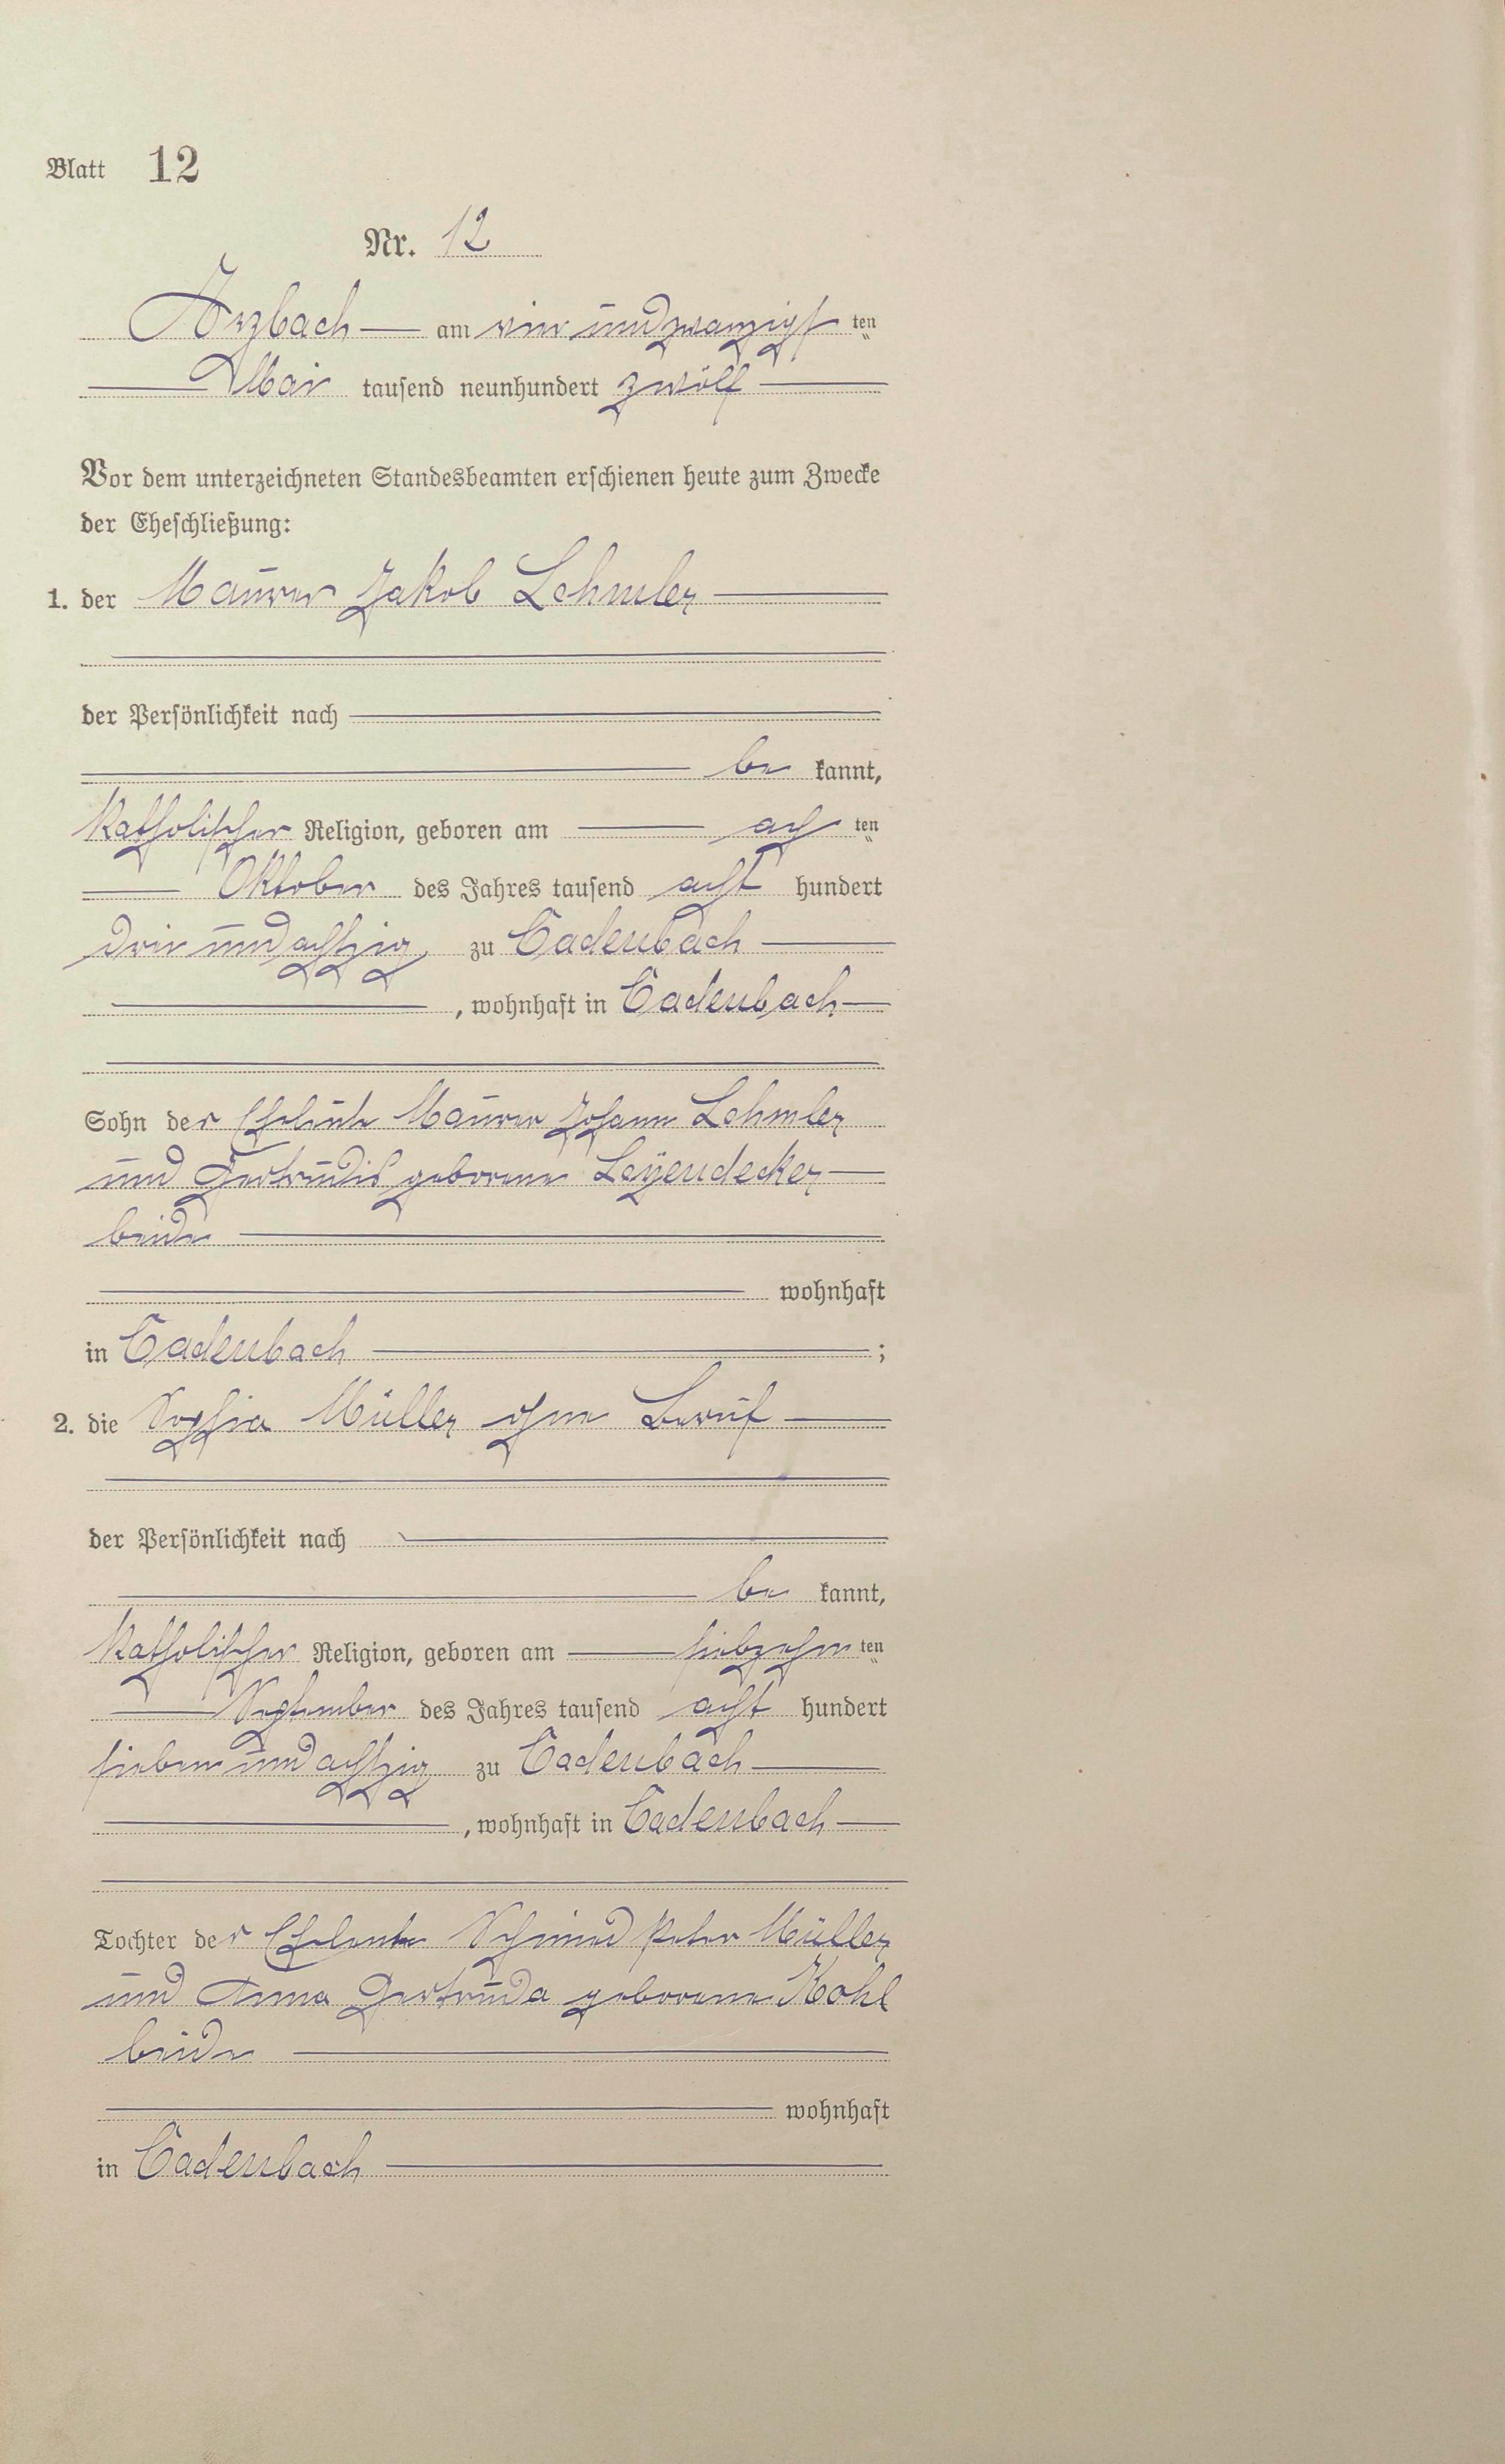 Blatt 12
Nr. 12
Arzbach am vier und zwanzigsten
Mai tausend neunhundert zwölf
Vor dem unterzeichneten Standesbeamten erschienen heute zum Zwecke
der Eheschließung:
1. der Maurer Jakob Lehmler
der Persönlichkeit nach
be kannt,
katholischer Religion, geboren am achten
Oktober des Jahres tausend acht hundert
drei und achtzig zu Cadenbach
, wohnhaft in Cadenbach
Sohn der Eheleute Maurer Johann Lehmler
und Gertrudis geborene Leÿendecker
beide
wohnhaft
in Cadenbach ;
2. die Sophia Müller ohne Beruf
der Persönlichkeit nach
be kannt,
katholischer Religion, geboren am siebzehnten
September des Jahres tausend acht hundert
sieben und achtzig zu Cadenbach
, wohnhaft in Cadenbach
Tochter der Eheleute Schmied Peter Müller
und Anna Gertruda geborene Kohl
beide
wohnhaft
in Cadenbach